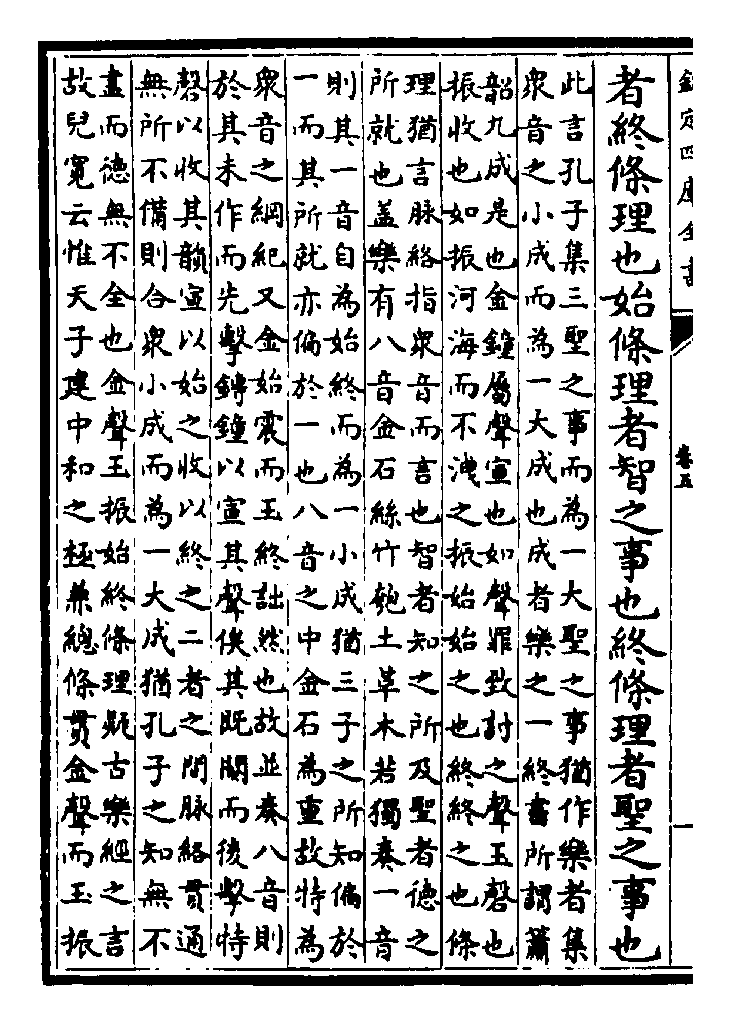 欽定四庫全書
卷五
一
者終條理也始條理者智之事也終條理者聖之事也
此言孔子集三聖之事而為一大聖之事猶作樂者集
衆音之小成而為一大成也成者樂之一終書所謂簫
韶九成是也金鐘屬聲宣也如聲罪致討之聲玉磬也
振收也如振河海而不洩之振始始之也終終之也條
理猶言脈絡指衆音而言也智者知之所及聖者德之
所就也蓋樂有八音金石絲竹匏土革木若獨奏一音
則其一音自為始終而為一小成猶三子之所知偏於
一而其所就亦偏於一也八音之中金石為重故特為
衆音之綱紀又金始震而玉終詘然也故並奏八音則
於其未作而先擊鎛鐘以宣其聲俟其既闋而後擊特
磬以收其韻宣以始之收以終之二者之間脈絡貫通
無所不備則合衆小成而為一大成猶孔子之知無不
盡而德無不全也金聲玉振始終條理疑古樂經之言
故兒寬云惟天子建中和之極兼總條貫金聲而玉振